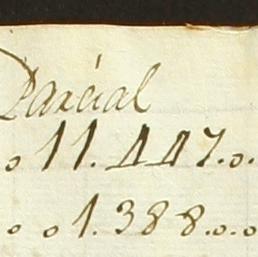 Parcial
o 11.447.o.
o o 1.388.o.o